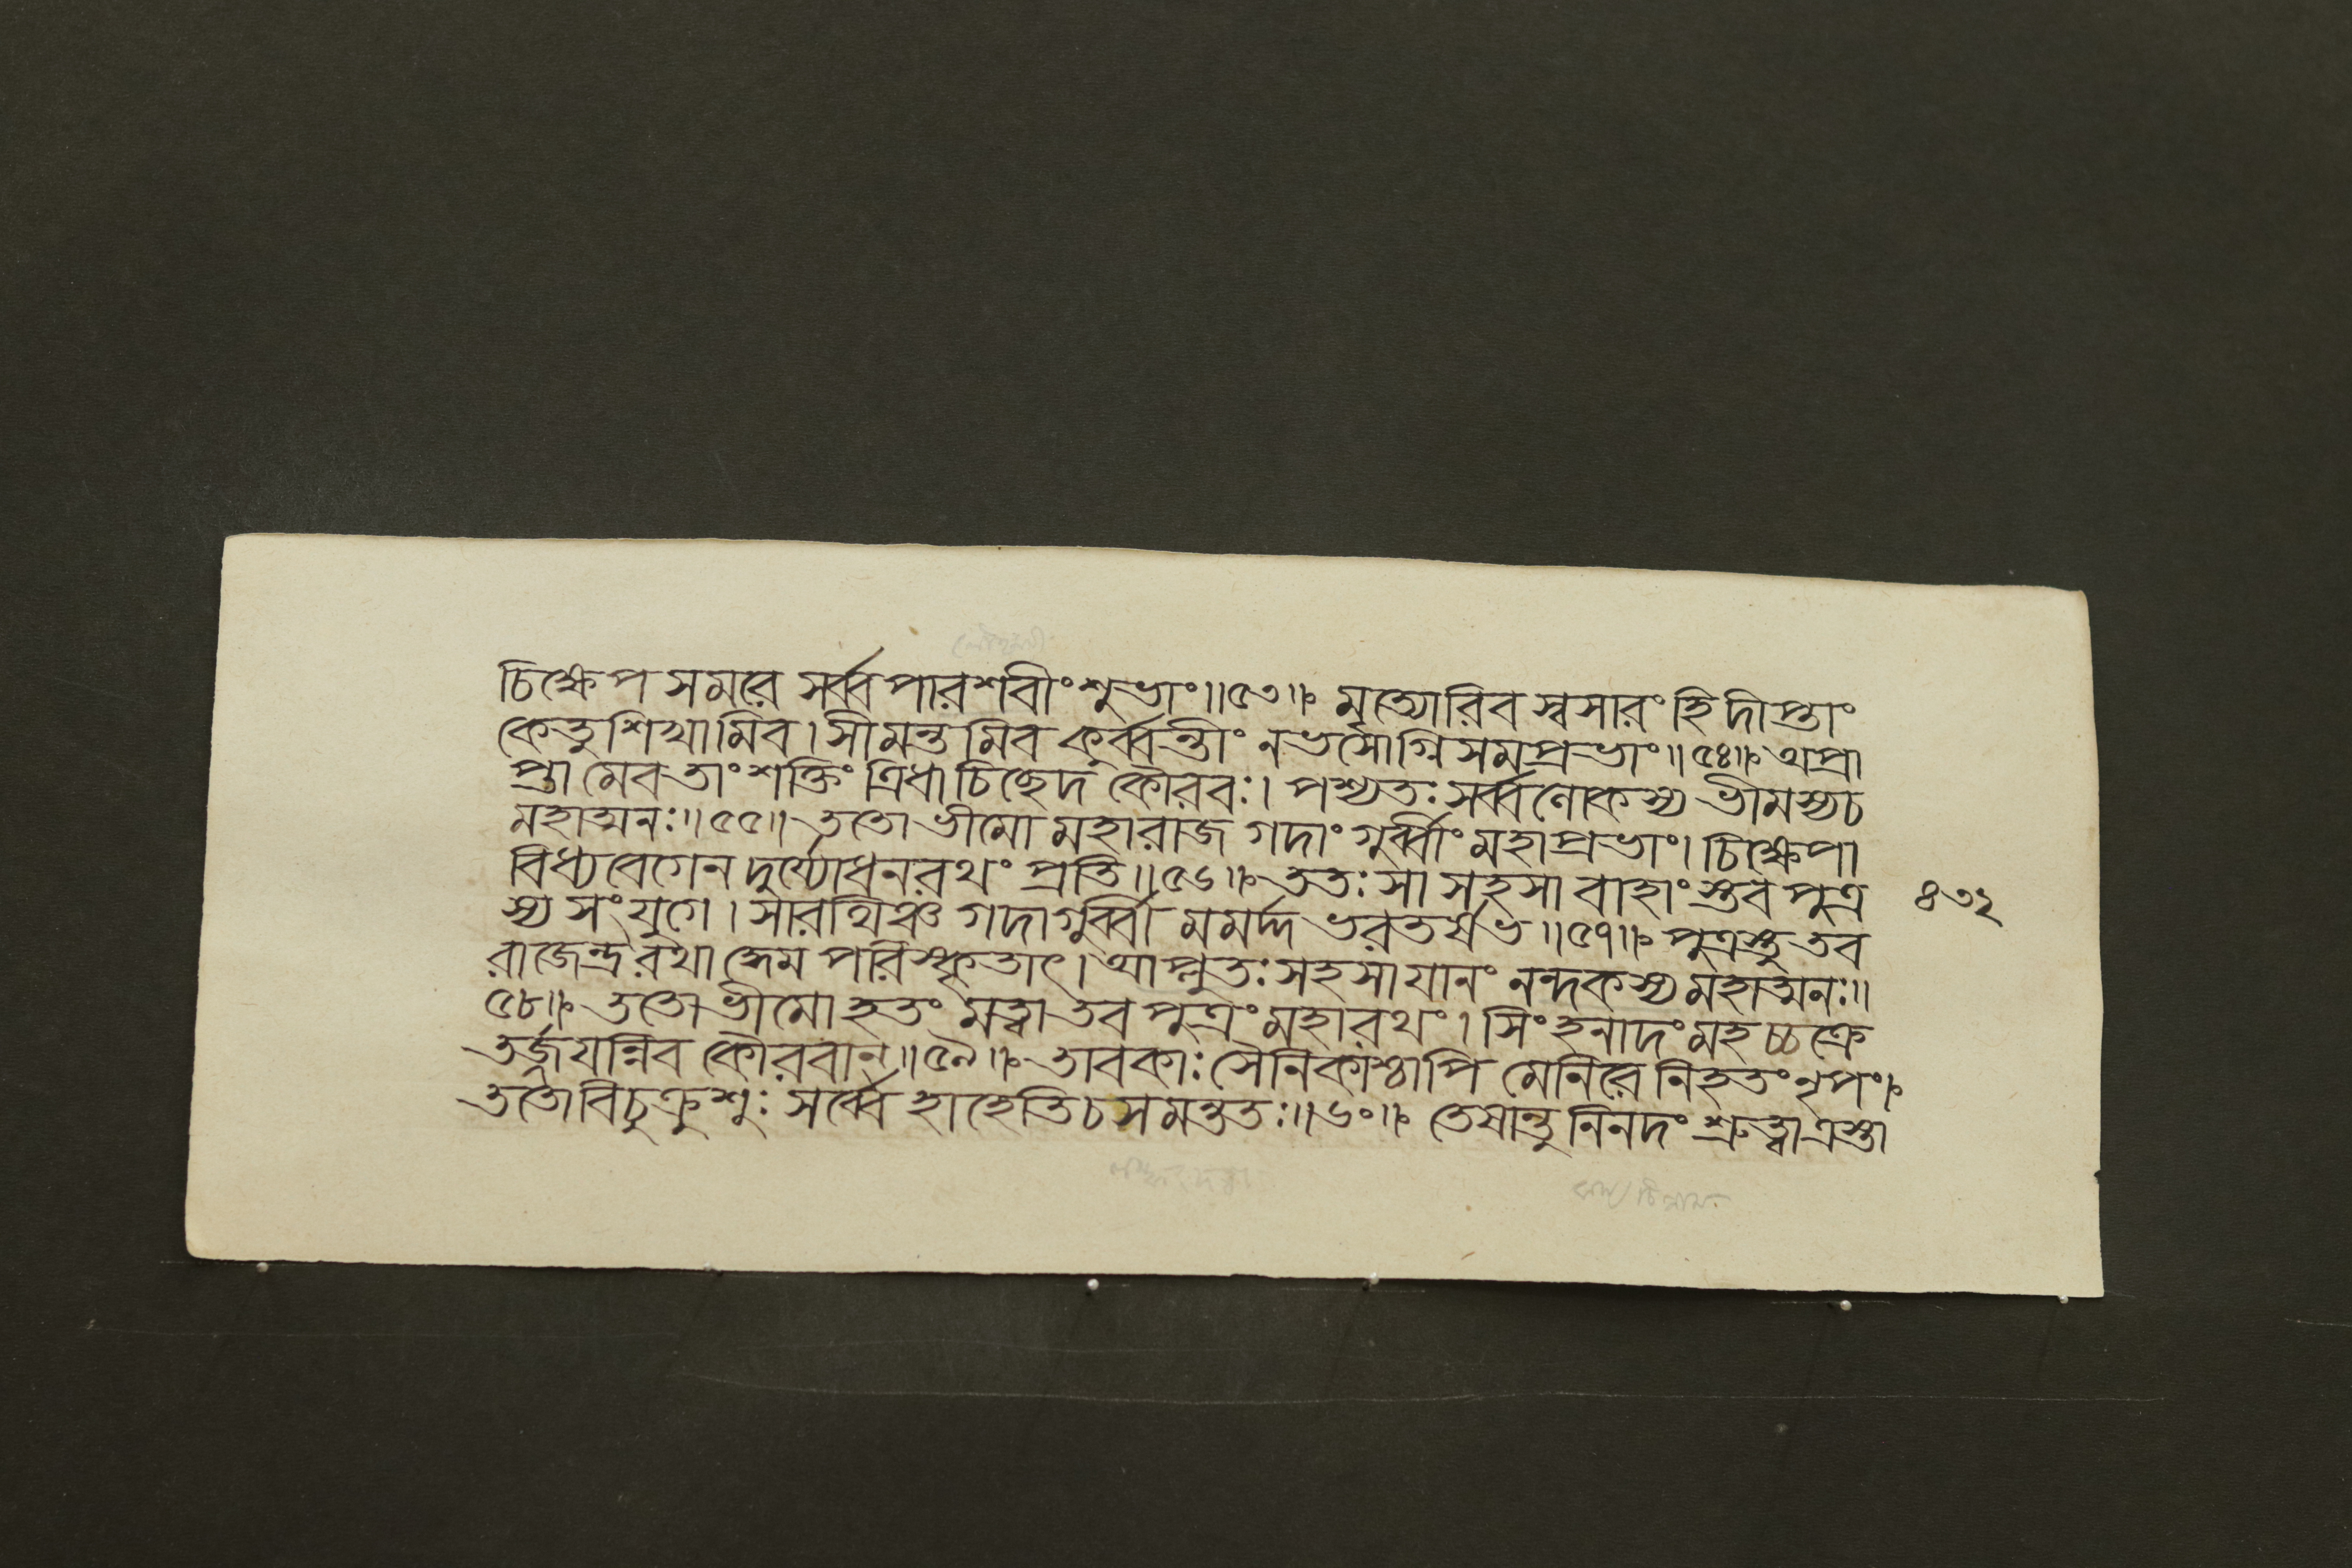 চিক্ষেপ সমরে সর্ব্বপারশবীং শুভাং॥৫৩॥ মৃত্যোরিব স্বসারং হি দীপ্তাং
কেতুশিখামিব। সীমন্তমিব কুর্ব্বন্তীং নভসোগ্নিসমপ্রভাং॥৫৪॥ অপ্রা
প্তামেব তাং শক্তিং ত্রিধা চিচ্ছেদ কৌরবঃ। পশ্যতঃ সর্ব্বলোকস্য ভীমস্য চ
মহাত্মনঃ॥৫৫॥ ততো ভীমো মহারাজ গদাং গুর্ব্বীং মহাপ্রভাং। চিক্ষেপা
বিধ্য বেগেন দুর্য্যোধনরথং প্রতি॥৫৬॥ ততঃ সা সহসা বাহাংস্তব পুত্র
৪৩২
স্য সংযুগে। সারথিঞ্চ গদাগুর্ব্বী মমর্দ্দ ভরতর্ষভ॥৫৭॥ পুত্রস্তু তব
রাজেন্দ্র রথাদ্ধেম পরিস্কৃতাৎ। আপ্লুতঃ সহসা যানং নন্দকস্য মহাত্মনঃ॥
৫৮॥ ততো ভীমো হতং মত্বা তব পুত্রং মহারথং। সিংহনাদং মহচ্চক্রে
তর্জয়ন্নিব কৌরবান্॥৫৯॥ তাবকাঃ সৈনিকাশ্চাপি মেনিরে নিহতং নৃপং।
ততো বিচুক্রুশুঃ সর্ব্বে হাহেতি চ সমন্ততঃ॥৬০॥ তেষান্তু নিনদং শ্রুত্বা ত্রস্তা